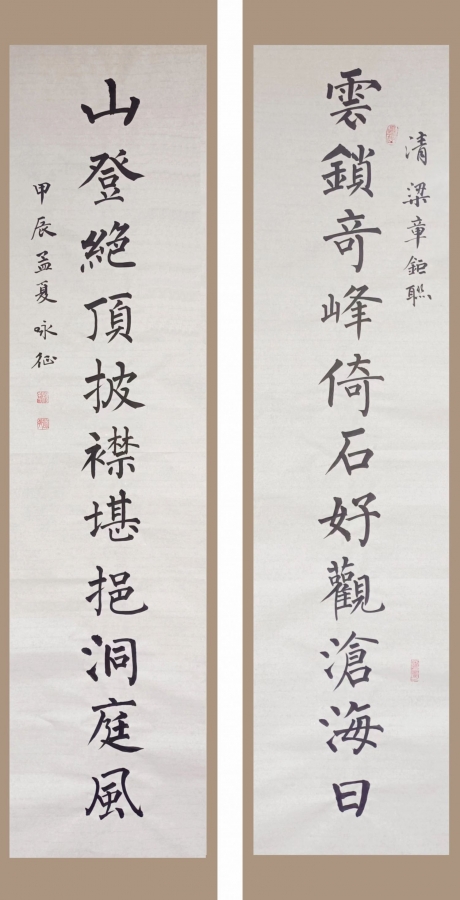 雲鎖奇峰倚石好觀滄海日
清 梁章鉅聯
山登絕頂披襟堪挹洞庭風
甲辰孟夏 咏征